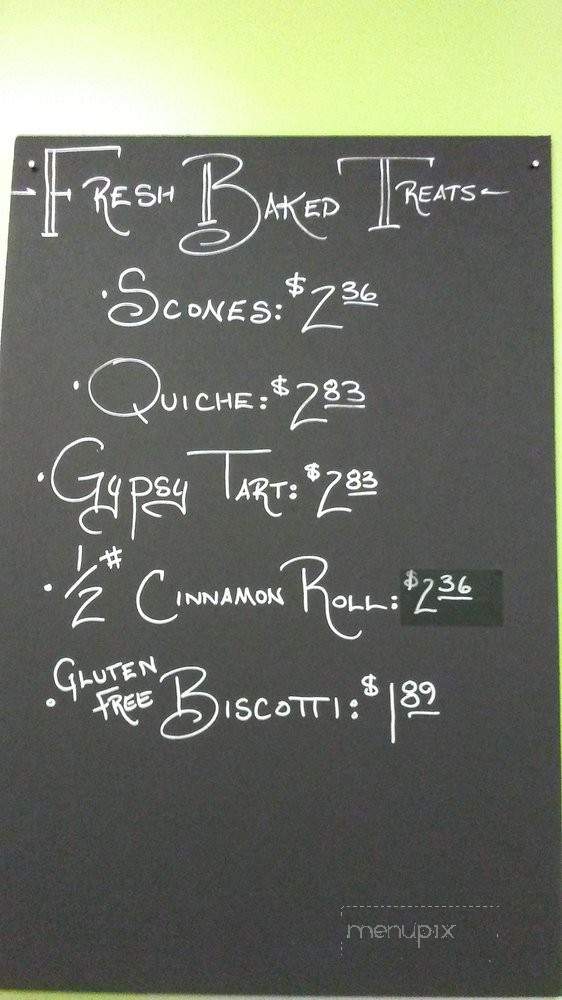 Fresh Baked Treats
• Scones: $2 36
• Quiche: $2 83
• Gypsy Tart: $2 83
• 1/2 # Cinnamon Roll: $2 36
• Gluten Free Biscotti: $1 89
menupix